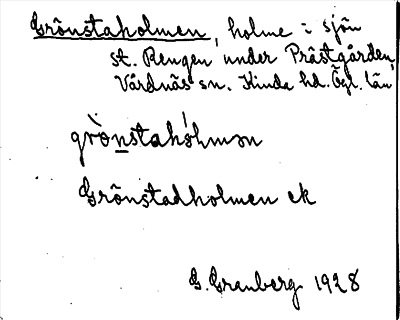 Grönstaholmen, holme i sjön
St. Rengen under Prästgården,
Vårdnäs sn. Kinda hd. Ögl. län
grò̀nstahólmən
Grönstadholmen ek
G. Granberg 1928